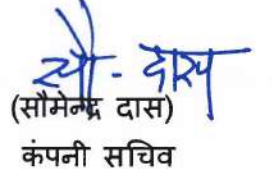 सौ - दास
(सौमेन्द्र दास)
कंपनी सचिव